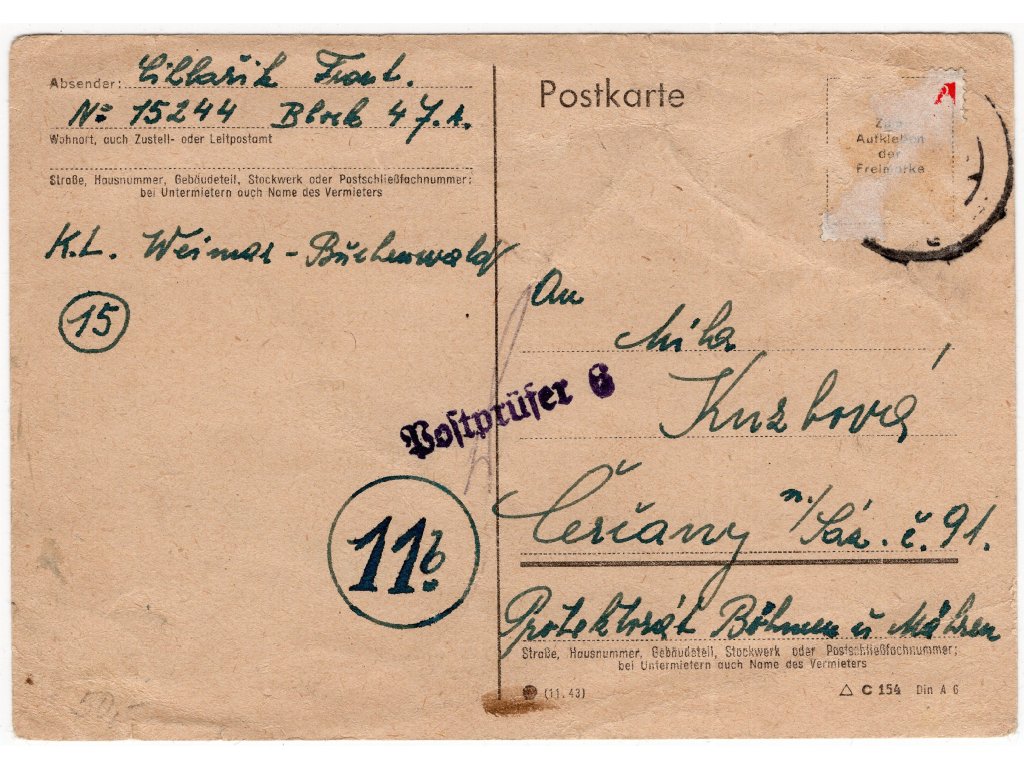 Absender: Cibbařík Frant.
No 15244 Block 47.A.
Wohnort, auch Zustell- oder Leitpostamt
Straße, Hausnummer, Gebäudeteil, Stockwerk oder Postschließfachnummer;
bei Untermietern auch Name des Vermieters
K.L. Weimar-Buchenwald
15
Postkarte
Zum
Aufkleben
der
Freimarke
An
Mila
Kuzbová
Postprüfer 6
Čerčany n/Sáz. č. 91.
11b
Protektorát Böhmen u Mähren
Straße, Hausnummer, Gebäudeteil, Stockwerk oder Postschließfachnummer;
bei Untermietern auch Name des Vermieters
(11.43)
C 154 Din A 6